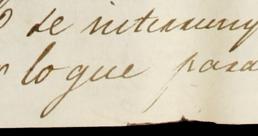 se interrump
lo que para